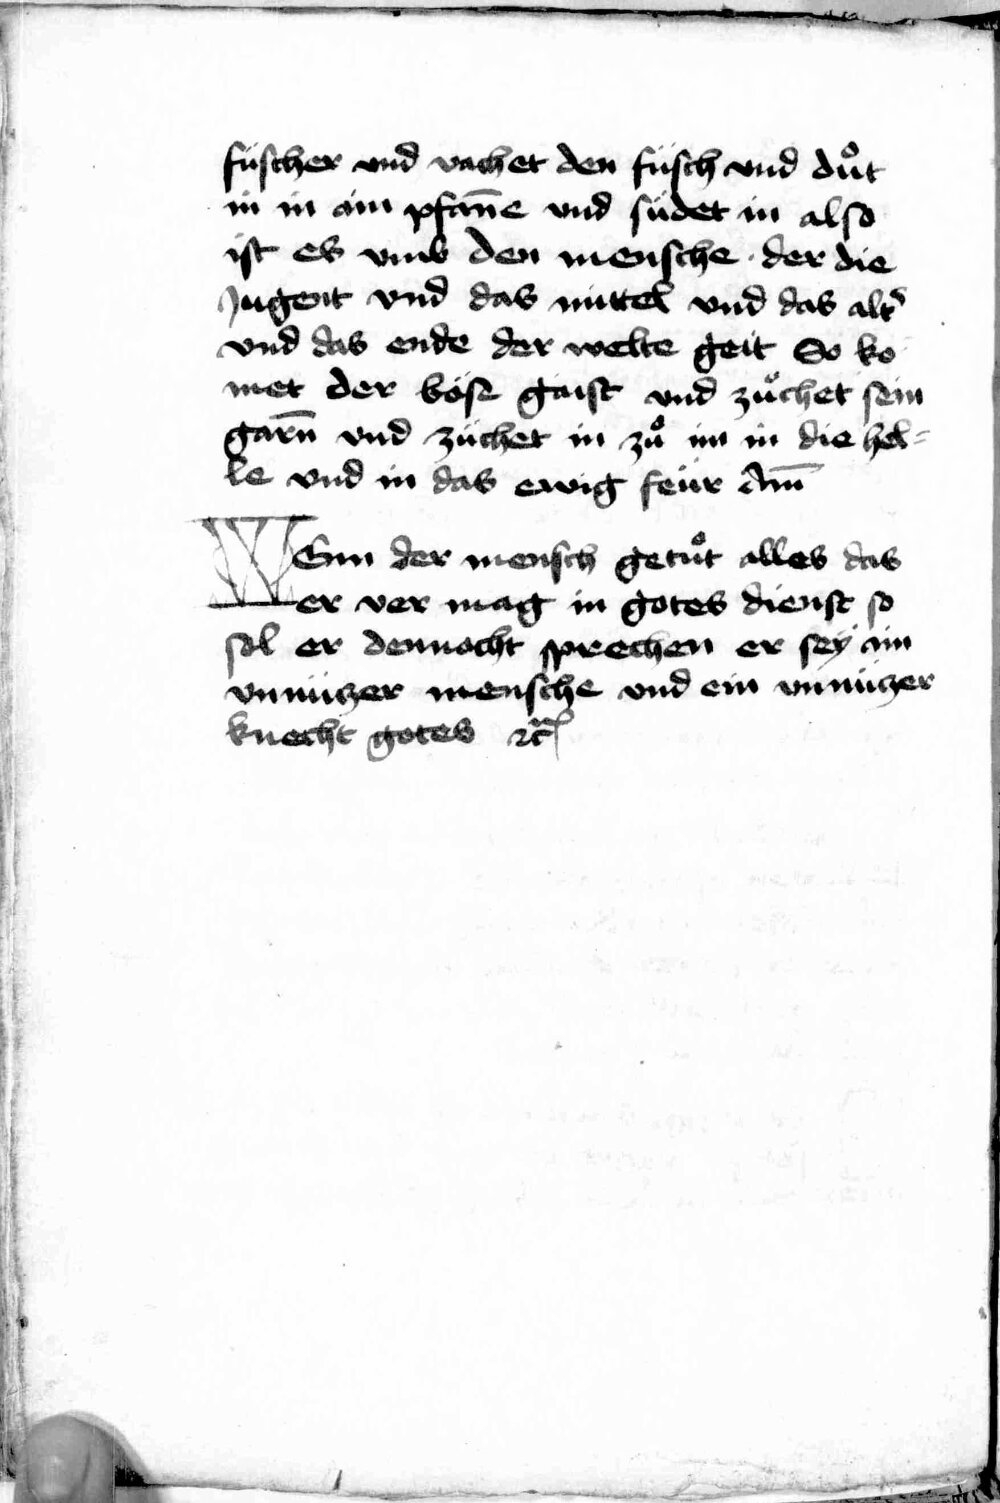 füscher vnd vachet den füsch vnd důt
in in aim pfañe vnd südet in also
ist es vmb den mensche · der die
Jugent vnd das mittel vnd das alt̛
vnd das ende der welte geit So ko
met der böse gaist vnd zůchet sein
garn̄ vnd züchet in zů im in die hel=
le vnd in das ewig feür Am̄
WEnn der mensch getůt alles das
er ver mag in gotes dienst so
sol er dennocht sprechen er sey ain
vnnüczer mensche vnd ein vnnüczer
knecht gotes ꝛc̃